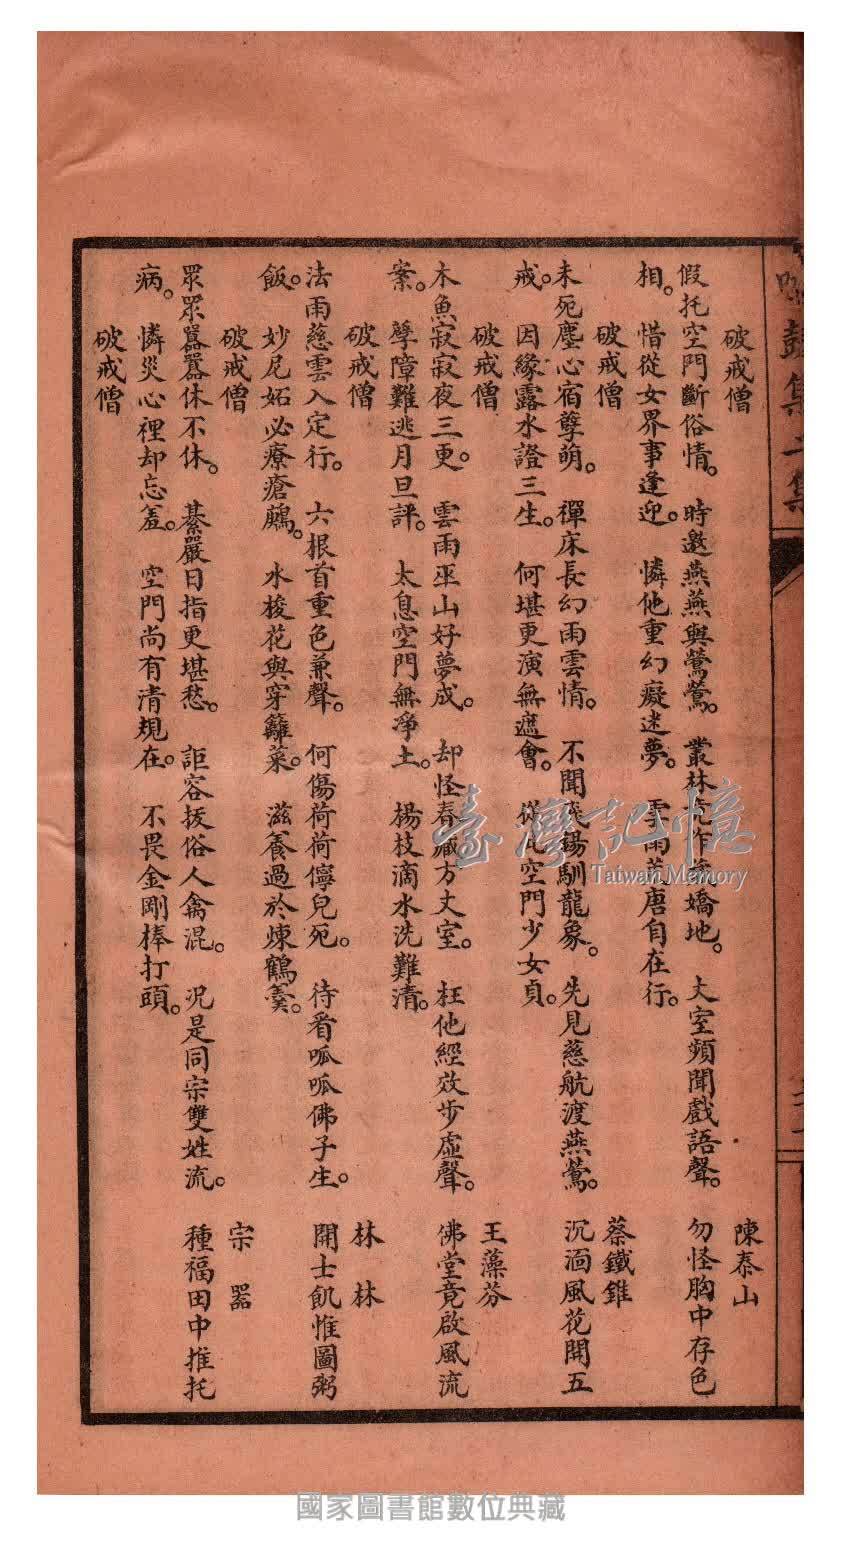 破戒僧 陳泰山
假托空門斷俗情。時邀燕燕與鶯鶯。叢林 嬌地。丈室頻聞戲語聲。勿怪胸中存色
相。惜從女界事逢迎。憐他重幻癡迷夢。雲雨荒唐自在行。
破戒僧 蔡鐵錐
未死塵心宿孽萌。禪床長幻雨雲情。不聞飛錫馴龍象。先見慈航渡燕鶯。沉湎風花開五
戒。因緣露水證三生。何堪更演無遮會。從 空門少女貞。
破戒僧 王藻芬
木魚寂寂夜三更。雲雨巫山好夢成。却怪春藏方丈室。枉他經效步虛聲。佛堂竟啟風流
案。孽障難逃月旦評。太息空門無凈土。楊枝滴水洗難清。
破戒僧 林林
法雨慈雲入定行。六根首重色兼聲。何傷荷荷儜兒死。待看呱呱佛子生。開士飢惟圖粥
飯。妙尼妬必療瘡鷉。水梭花與穿籬菜。滋養過於煉鶴羹。
破戒僧 宗器
眾眾囂囂休不休。綦嚴日指更堪愁。詎容拔俗人禽混。況是同宗雙姓流。種福田中推托
病。憐災心裡却忘羞。空門尚有清規在。不畏金剛棒打頭。
破戒僧
臺灣記憶
Taiwan Memory
國家圖書館數位典藏